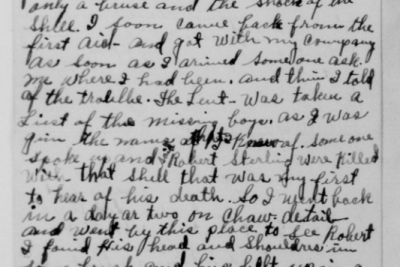 only a bruse and the shock of the
shell. I soon came back from the
first aid- and got with my company
as soon as I arived someone ask
me where I had been. and then I told
of the trouble. The Leut- was taken a
List of the missing boys. as I was
givin the names of knew of. someone
spoke up and Robert Sterling were killed
with that shell that was my first
to hear of his death. So I went back
in a day or two on Chow-detail
and went by this place to see Robert
I found His head and shoulders in